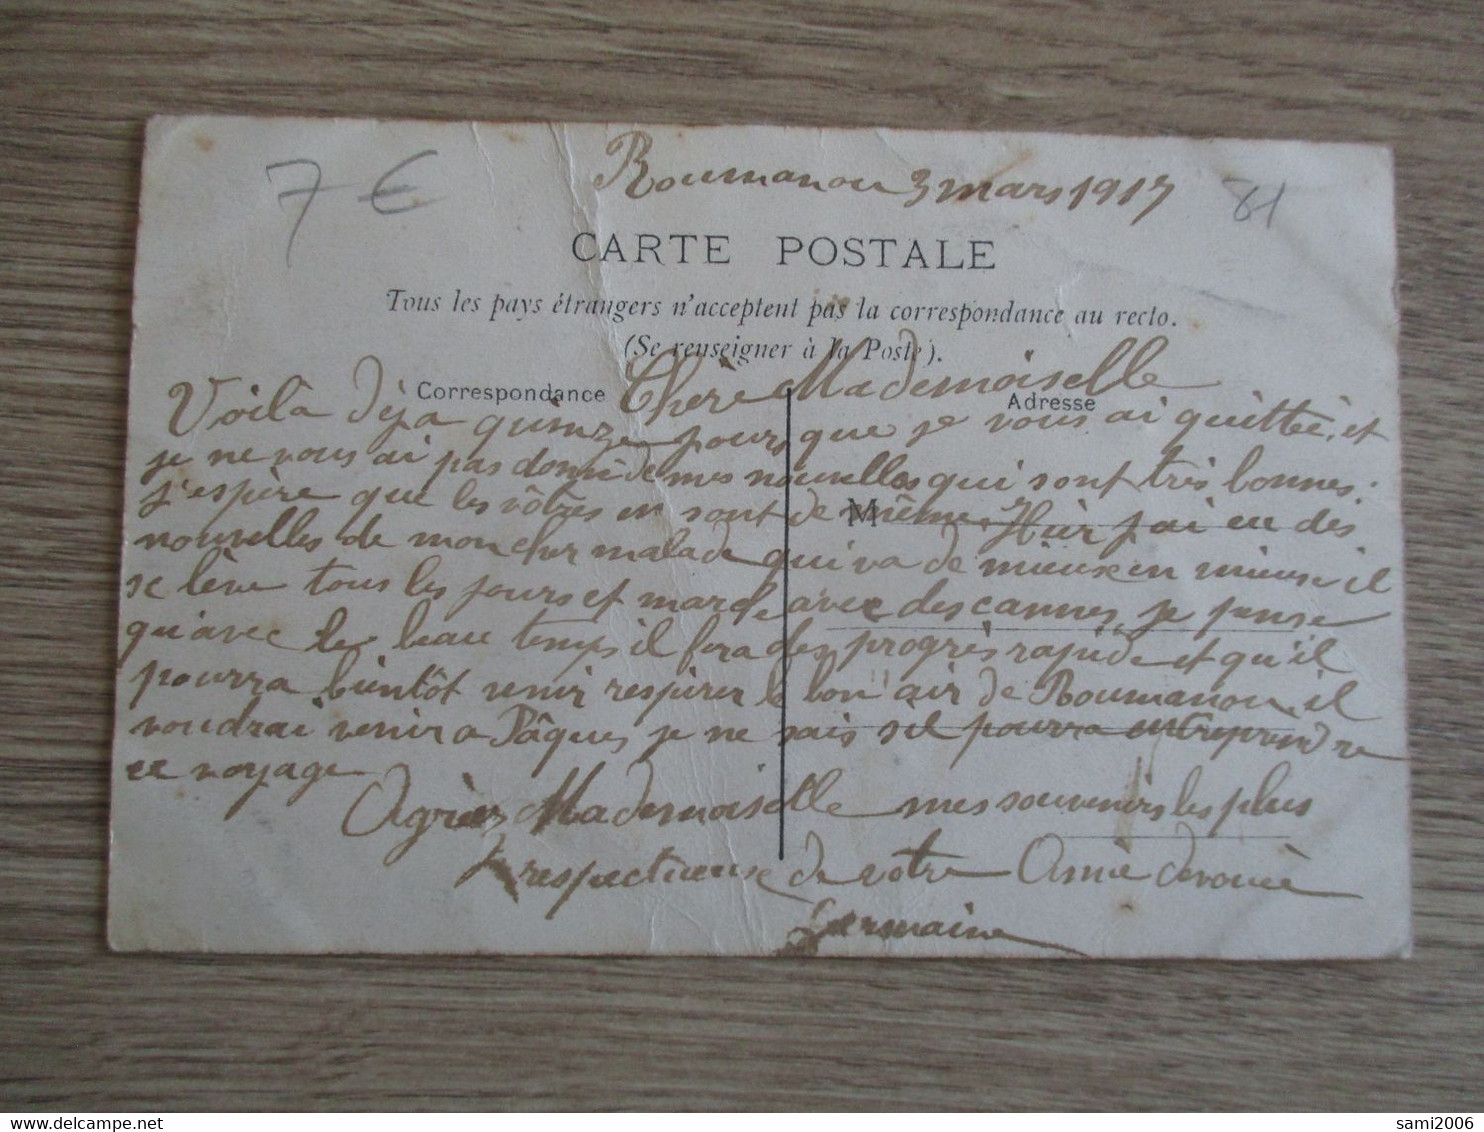 7 €
Roumanou 3 mars 1917
81
CARTE POSTALE
Tous les pays étrangers n'acceptent pas la correspondance au recto.
(Se renseigner à la Poste).
Correspondance
Adresse
M
Chère Mademoiselle
Voilà déja quinze jours que je vous ai quittée, et
je ne vous ai pas donné de mes nouvelles qui sont très bonnes.
j'espère que les vôtres en sont de même. Hier j'ai eu des
nouvelles de mon cher malade qui va de mieux en mieux il
se lève tous les jours et marche avec des cannes, je pense
qu'avec le beau temps il fera des progrès rapide et qu'il
pourra bientôt venir respirer le bon air de Roumanou, il
voudrai venir a Pâques, je ne sais sil pourra entreprendre
ce voyage
Agréez Mademoiselle mes souvenirs les plus
respectueuse de votre Amie devouée
Germaine
sami2006